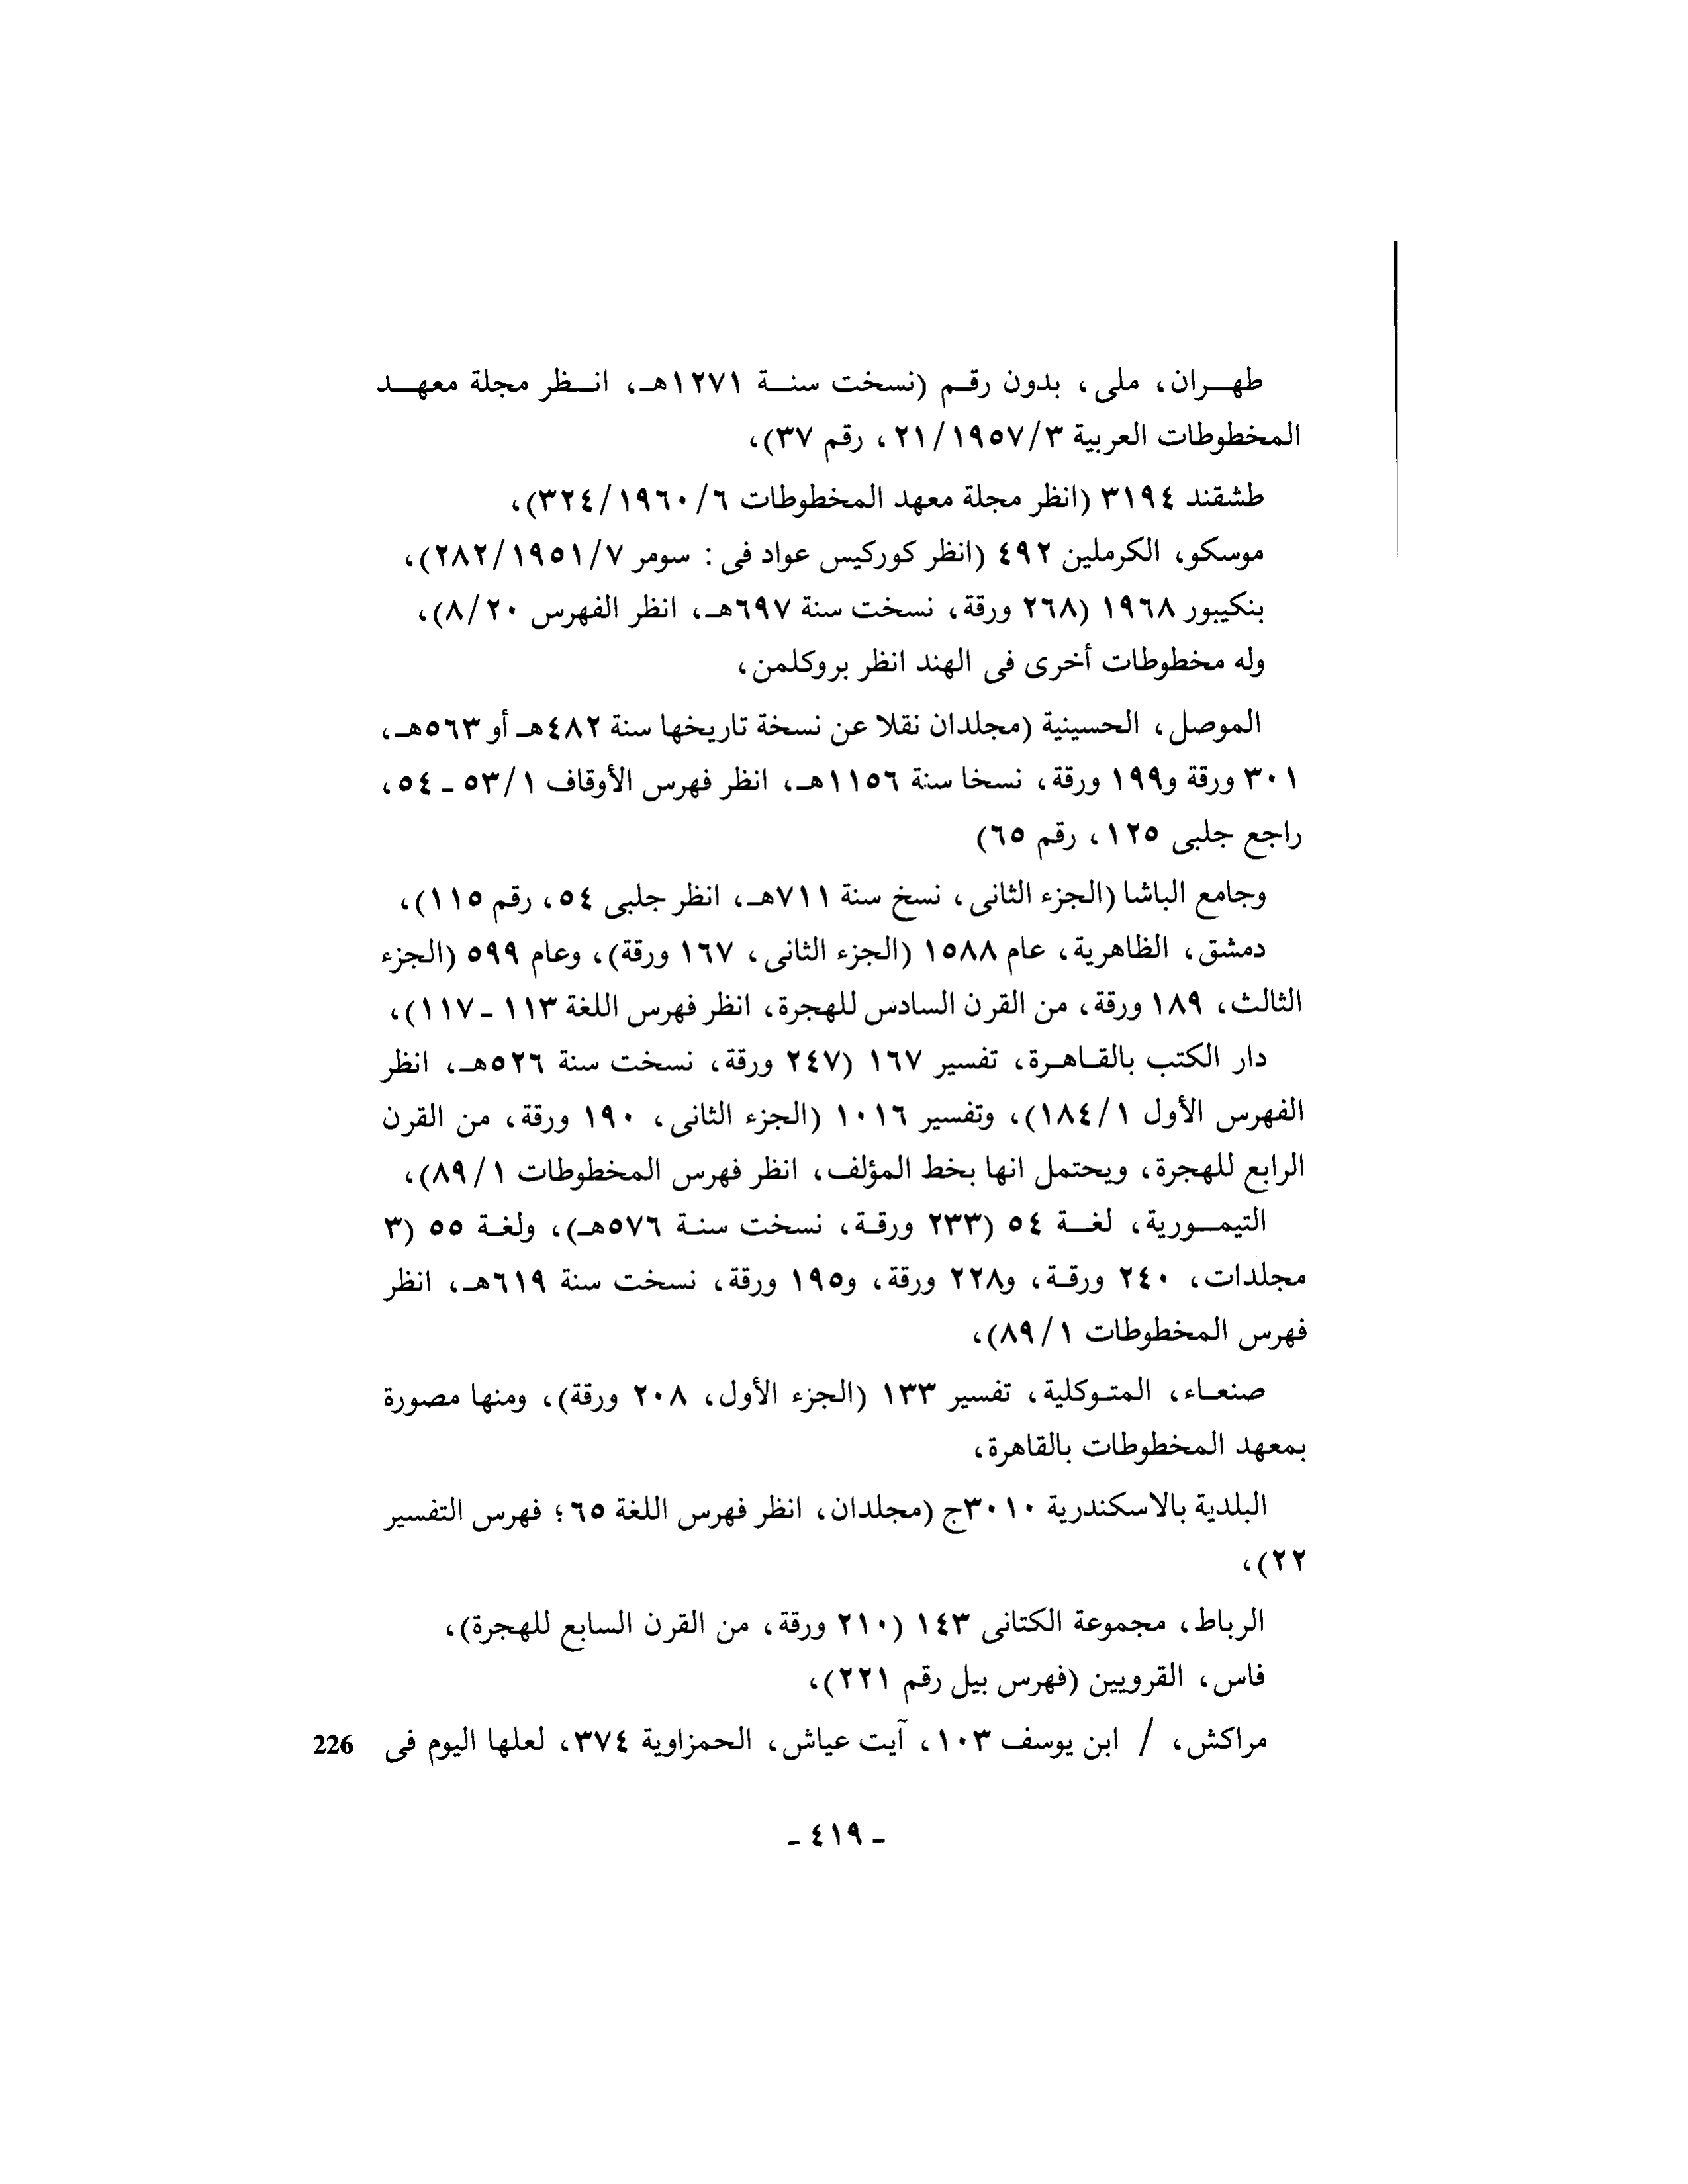 طهران، ملى، بدون رقم (نسخت سنة ١٢٧١هـ، انظر مجلة معهد
المخطوطات العربية ٣/١٩٥٧/٢١، رقم ٣٧)،
طشقند ٣١٩٤ (انظر مجلة معهد المخطوطات ٦/١٩٦٠/٣٢٤)،
موسكو، الكرملين ٤٩٢ (انظر كوركيس عواد فى : سومر ٧/١٩٥١/٢٨٢)،
بنكيبور ١٩٦٨ (٢٦٨ ورقة، نسخت سنة ٦٩٧هـ، انظر الفهرس ٨/٢٠)،
وله مخطوطات أخرى فى الهند انظر بروكلمن،
الموصل، الحسينية (مجلدان نقلا عن نسخة تاريخها سنة ٤٨٢هـ أو ٥٦٣هـ،
٣٠١ ورقة و١٩٩ ورقة، نسخا سنة ١١٥٦هـ، انظر فهرس الأوقاف ١/٥٣ ـ ٥٤،
راجع جلبى ١٢٥، رقم ٦٥)
وجامع الباشا (الجزء الثانى، نسخ سنة ٧١١هـ، انظر جلبى ٥٤، رقم ١١٥)،
دمشق، الظاهرية، عام ١٥٨٨ (الجزء الثانى، ١٦٧ ورقة)، وعام ٥٩٩ (الجزء
الثالث، ١٨٩ ورقة، من القرن السادس للهجرة، انظر فهرس اللغة ١١٣ ـ ١١٧)،
دار الكتب بالقاهرة، تفسير ١٦٧ (٢٤٧ ورقة، نسخت سنة ٥٢٦هـ، انظر
الفهرس الأول ١/١٨٤)، وتفسير ١٠١٦ (الجزء الثانى، ١٩٠ ورقة، من القرن
الرابع للهجرة، ويحتمل انها بخط المؤلف، انظر فهرس المخطوطات ١/٨٩)،
التيمورية، لغة ٥٤ (٢٣٣ ورقة، نسخت سنة ٥٧٦هـ)، ولغة ٥٥ (٣
مجلدات، ٢٤٠ ورقة، و٢٢٨ ورقة، و١٩٥ ورقة، نسخت سنة ٦١٩هـ، انظر
فهرس المخطوطات ١/٨٩)،
صنعاء، المتوكلية، تفسير ١٣٣ (الجزء الأول، ٢٠٨ ورقة)، ومنها مصورة
بمعهد المخطوطات بالقاهرة،
البلدية بالاسكندرية ٣٠١٠ج (مجلدان، انظر فهرس اللغة ٦٥؛ فهرس التفسير
٢٢)،
الرباط، مجموعة الكتانى ١٤٣ (٢١٠ ورقة، من القرن السابع للهجرة)،
فاس، القرويين (فهرس بيل رقم ٢٢١)،
مراكش، / ابن يوسف ١٠٣، آيت عياش، الحمزاوية ٣٧٤، لعلها اليوم فى 226
ـ ٤١٩ ـ